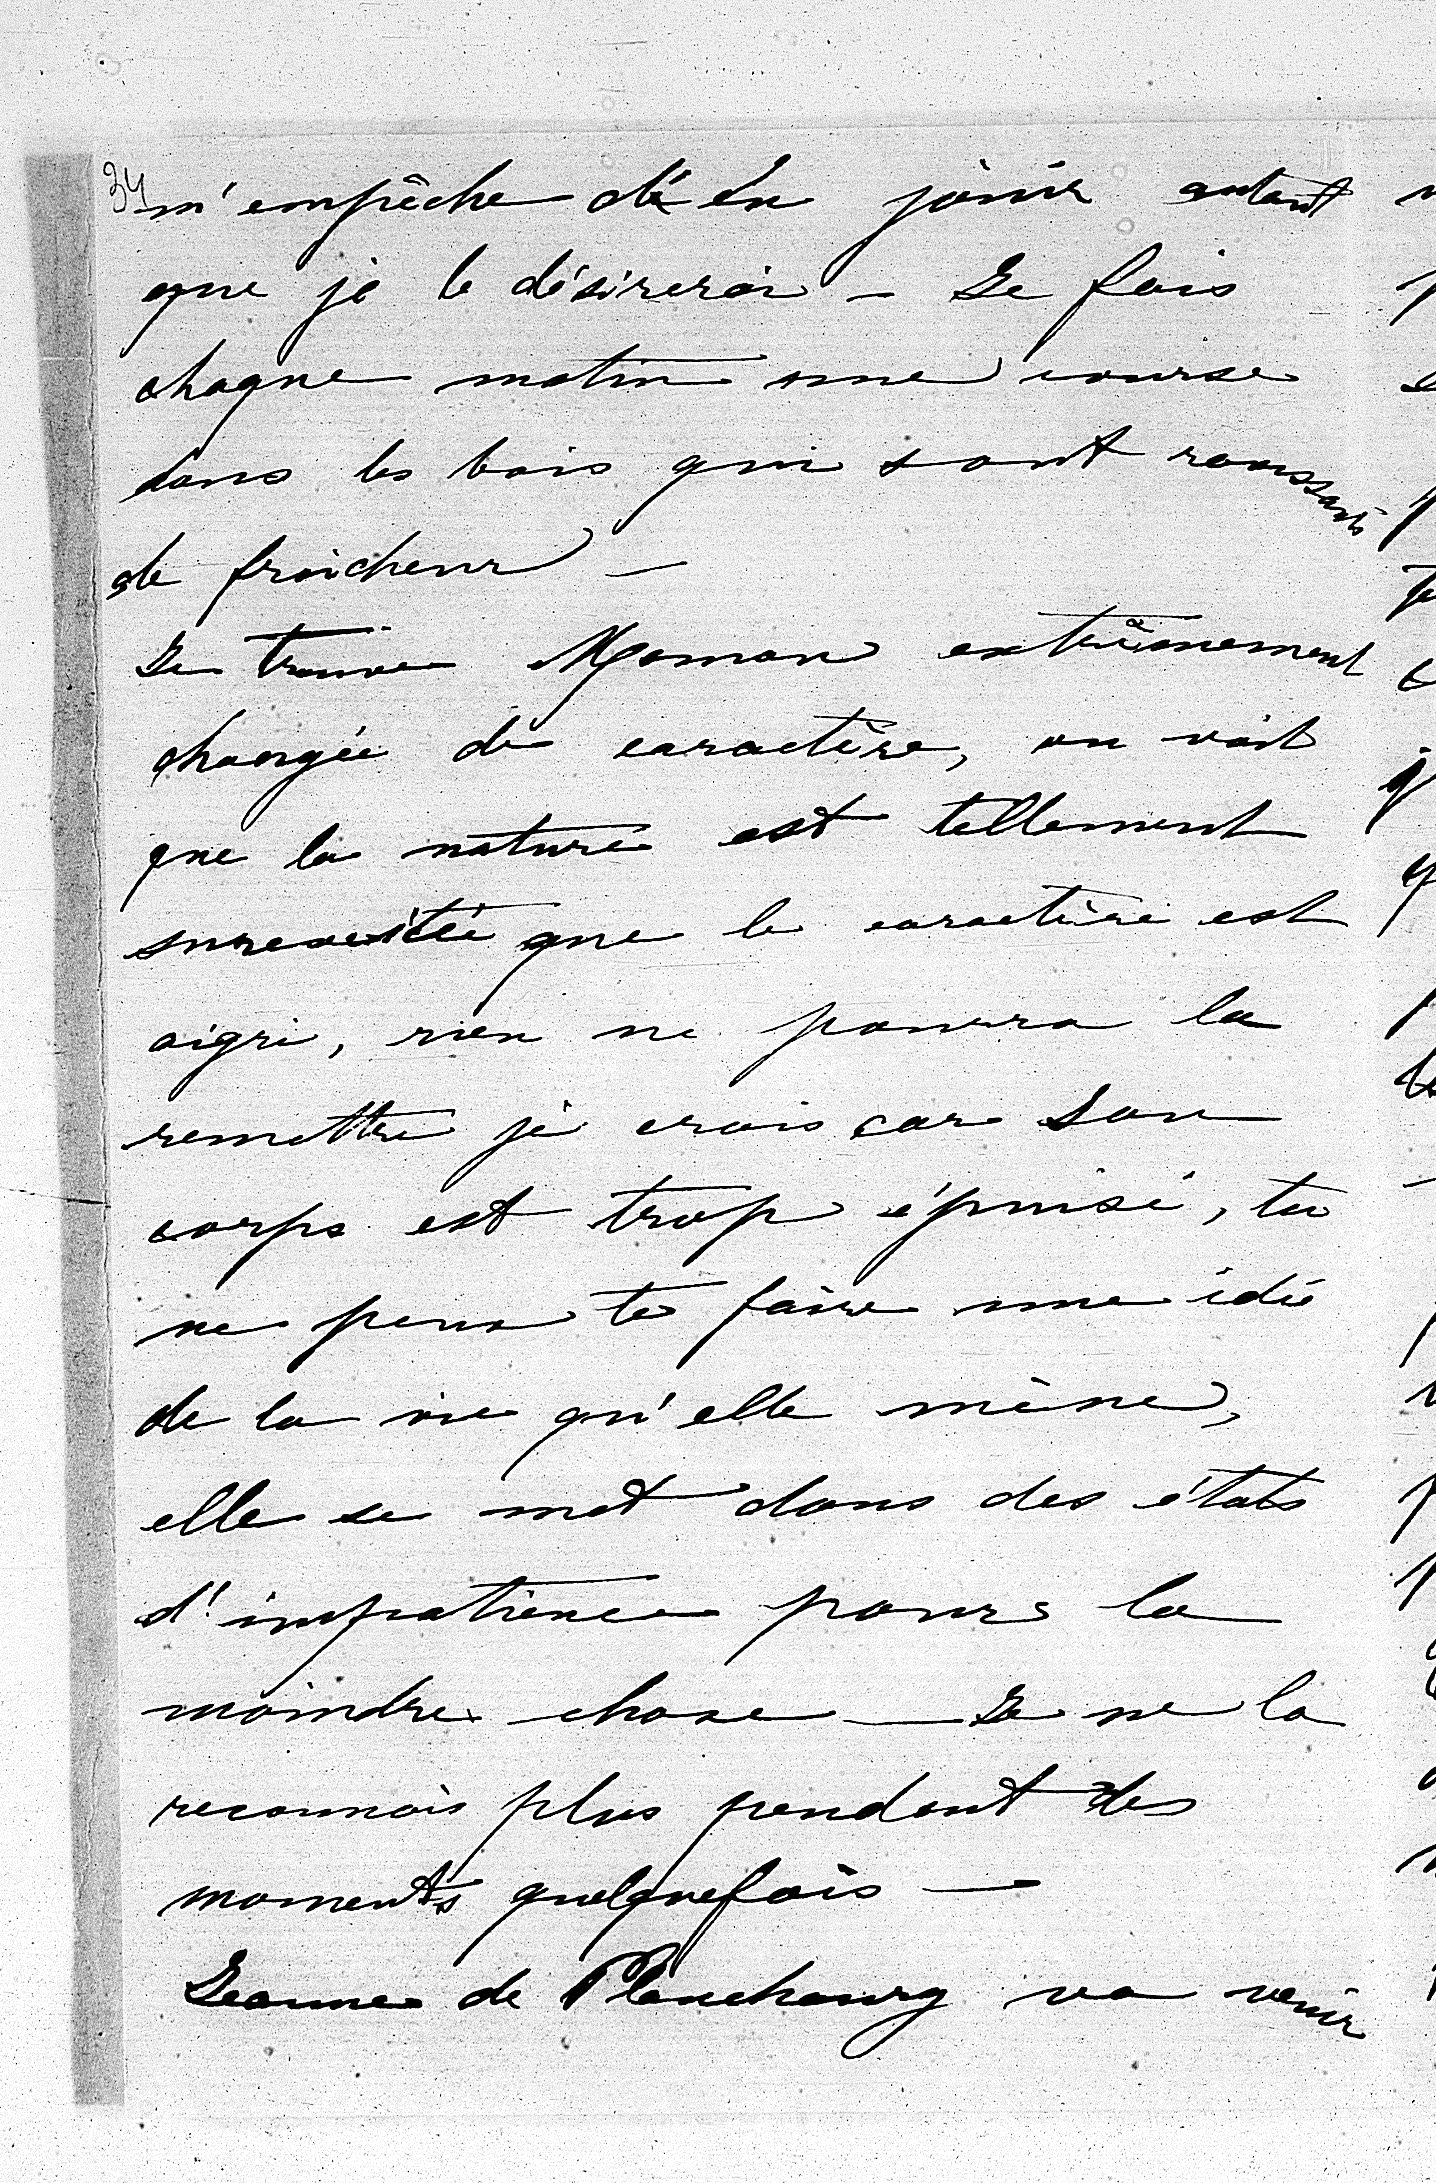 34
m'empêche d'en jouir autant
que je le désirerai - Je fais
chaque matin une course
dans les bois qui sont
de fraicheur -
Je trouve Maman extrêmement
changée de caractère, on voit
que la nature est tellement
surexcitée que le caractère est
aigri, rien ne pourra la
remettre je crois car son
corps est trop épuisé, tu
ne peux te faire une idée
de la vie qu'elle mène,
elle se met dans des états
d'impatience pour la
moindre chose - Je ne la
reconnais plus pendant des
moments quelquefois -
Jeanne de va venir